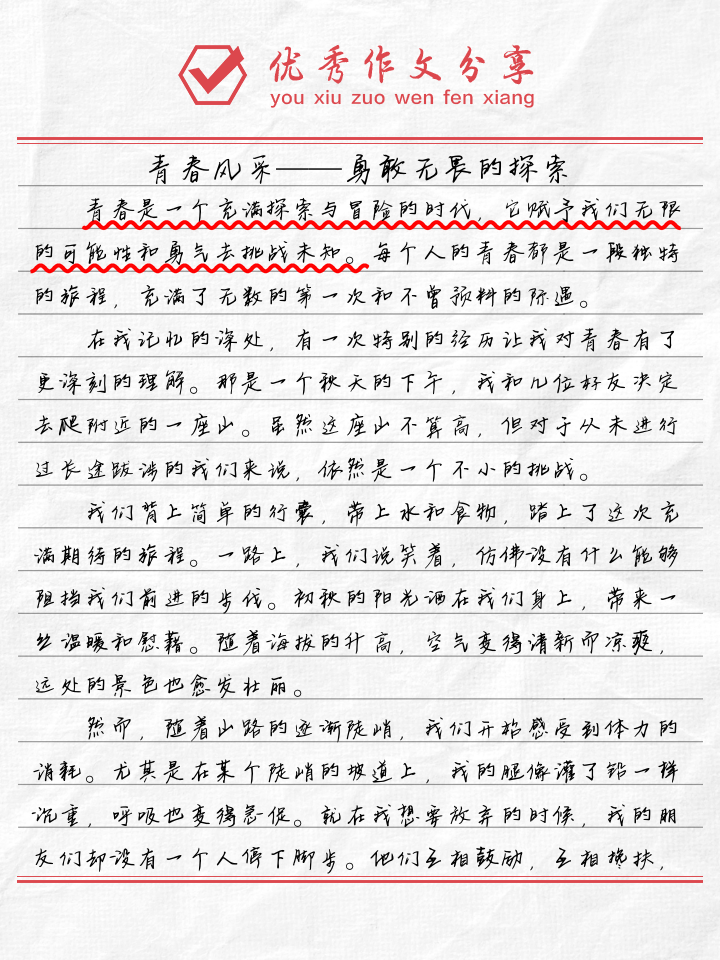 优秀作文分享
you xiu zuo wen fen xiang
青春风采——勇敢无畏的探索
青春是一个充满探索与冒险的时代，它赋予我们无限
的可能性和勇气去挑战未知。每个人的青春都是一段独特
的旅程，充满了无数的第一次和不曾预料的际遇。
在我记忆的深处，有一次特别的经历让我对青春有了
更深刻的理解。那是一个秋天的下午，我和几位好友决定
去爬附近的一座山。虽然这座山不算高，但对于从未进行
过长途跋涉的我们来说，依然是一个不小的挑战。
我们背上简单的行囊，带上水和食物，踏上了这次充
满期待的旅程。一路上，我们说笑着，仿佛没有什么能够
阻挡我们前进的步伐。初秋的阳光洒在我们身上，带来一
丝温暖和慰藉。随着海拔的升高，空气变得清新而凉爽，
远处的景色也愈发壮丽。
然而，随着山路的逐渐陡峭，我们开始感受到体力的
消耗。尤其是在某个陡峭的坡道上，我的腿像灌了铅一样
沉重，呼吸也变得急促。就在我想要放弃的时候，我的朋
友们却没有一个人停下脚步。他们互相鼓励，互相搀扶，